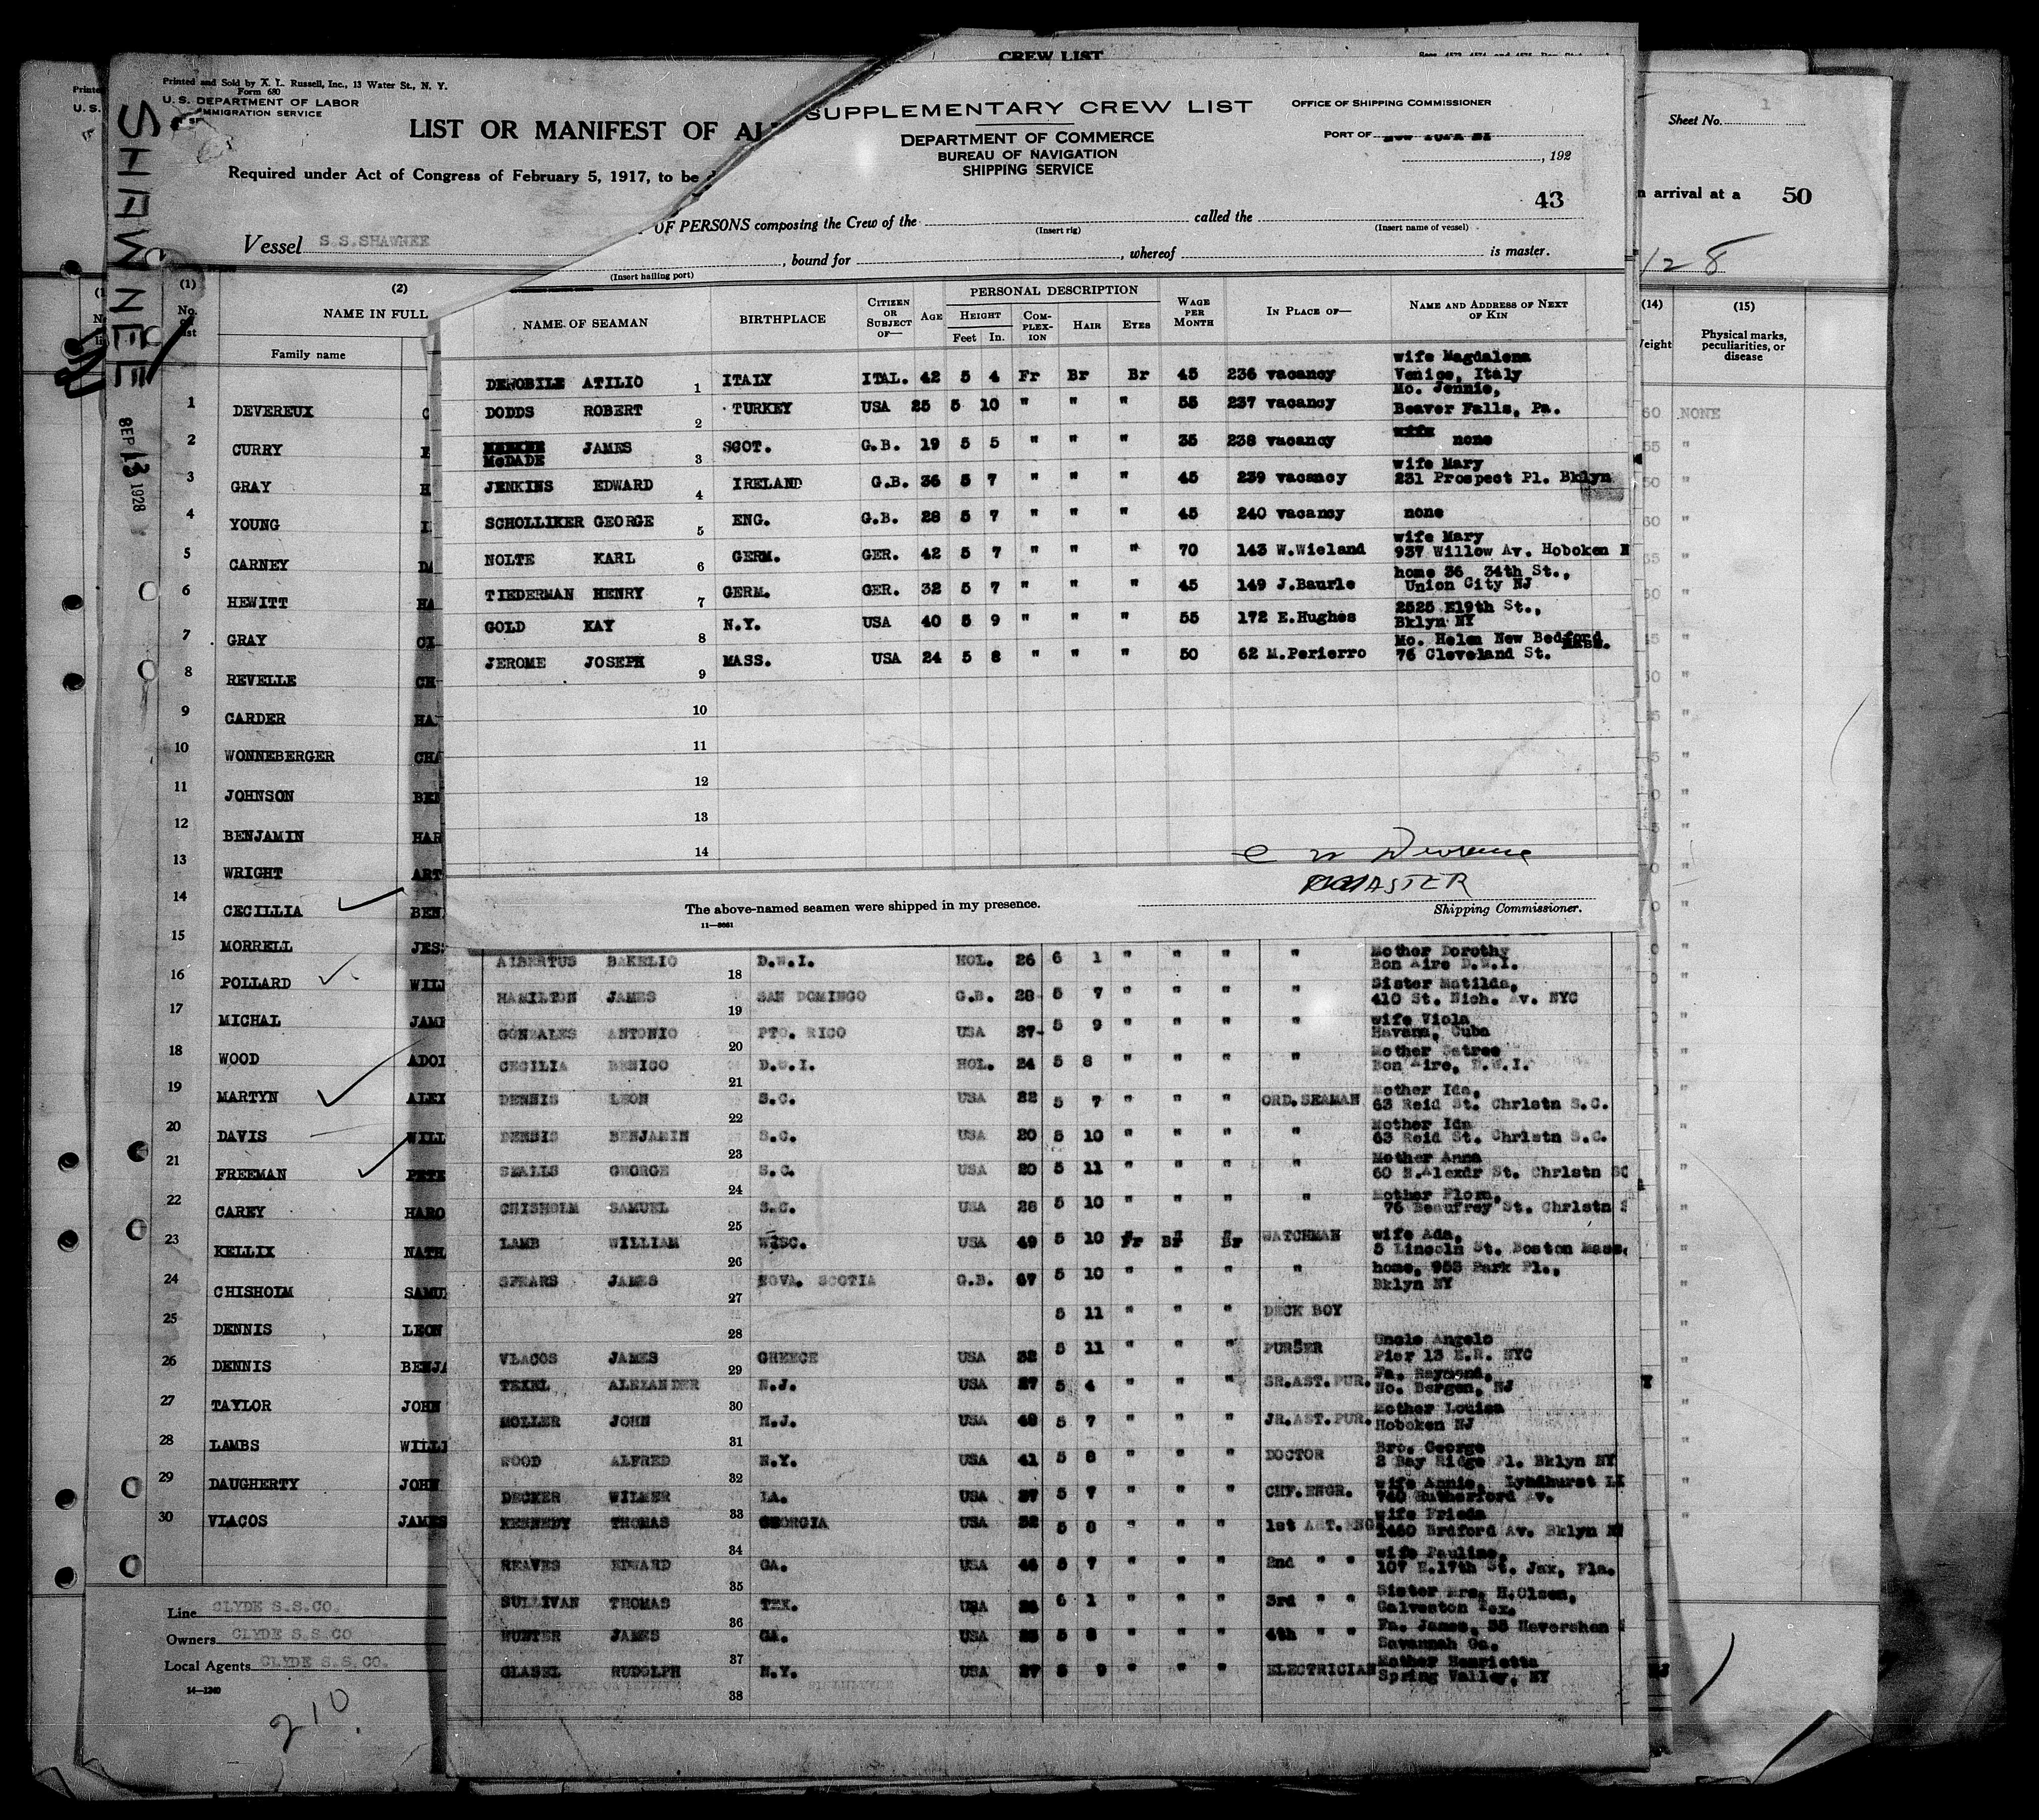 Printed and Sold by A. L. Russell, Inc., 13 Water St., N. Y.
Form 680
U. S. DEPARTMENT OF LABOR
IMMIGRATION SERVICE
LIST OR MANIFEST OF AL
Required under Act of Congress of February 5, 1917, to be d
Vessel S.S.SHAWNEE
SHAWNEE
SEP 13 1928
(1) (2)
No. on list
NAME IN FULL
Family name
1 DEVEREUX
2 CURRY
3 GRAY H
4 YOUNG
5 CARNEY DA
6 HEWITT HA
7 GRAY
8 REVELLE CH
9 CARDER HA
10 WONNEBERGER CHA
11 JOHNSON BEN
12 BENJAMIN HAR
13 WRIGHT ART
14 CECILLIA BEN
15 MORRELL JES
16 POLLARD WILL
17 MICHAL JAME
18 WOOD ADOL
19 MARTYN ALEX
20 DAVIS WILL
21 FREEMAN PETE
22 CAREY HARO
23 KELLIX NATH
24 CHISHOLM SAMU
25 DENNIS LEON
26 DENNIS BENJA
27 TAYLOR JOHN
28 LAMBS WILLI
29 DAUGHERTY JOHN
30 VLACOS JAMES
Line CLYDE S.S.CO.
Owners CLYDE S.S.CO
Local Agents CLYDE S.S.CO.
14—1240
210
CREW LIST
SUPPLEMENTARY CREW LIST
DEPARTMENT OF COMMERCE
BUREAU OF NAVIGATION
SHIPPING SERVICE
OFFICE OF SHIPPING COMMISSIONER
PORT OF
, 192
43
OF PERSONS composing the Crew of the called the
(Insert rig) (Insert name of vessel)
, bound for , whereof is master.
(Insert hailing port)
NAME OF SEAMAN BIRTHPLACE CITIZEN OR SUBJECT OF— AGE PERSONAL DESCRIPTION WAGE PER MONTH IN PLACE OF— NAME AND ADDRESS OF NEXT OF KIN
HEIGHT COMPLEXION HAIR EYES
Feet In.
wife Magdalena
DENOBILE ATILIO 1 ITALY ITAL. 42 5 4 Fr Br Br 45 236 vacancy Venice, Italy
Mo. Jennie,
DODDS ROBERT 2 TURKEY USA 25 5 10 " " " 55 237 vacancy Beaver Falls, Pa.
McDADE JAMES 3 SCOT. G.B. 19 5 5 " " " 35 238 vacancy none
wife Mary
JENKINS EDWARD 4 IRELAND G.B. 36 5 7 " " " 45 239 vacancy 231 Prospect Pl. Bklyn
SCHOLLIKER GEORGE 5 ENG. G.B. 28 5 7 " " " 45 240 vacancy none
wife Mary
NOLTE KARL 6 GERM. GER. 42 5 7 " " " 70 143 W.Wieland 937 Willow Av. Hoboken N
home 36 34th St.,
TIEDERMAN HENRY 7 GERM. GER. 32 5 7 " " " 45 149 J.Baurle Union City NJ
2525 E19th St.,
GOLD KAY 8 N.Y. USA 40 5 9 " " " 55 172 E.Hughes Bklyn NY
Mo. Helen New Bedford Mass.
JEROME JOSEPH 9 MASS. USA 24 5 8 " " " 50 62 M.Perierro 76 Cleveland St.
10
11
12
13
14
MASTER
The above-named seamen were shipped in my presence.
Shipping Commissioner.
Mother Dorothy
ALBERTUS BAKELIO 18 D.W.I. HOL. 26 6 1 " " " " Bon Aire D.W.I.
Sister Matilda,
HAMILTON JAMES 19 SAN DOMINGO G.B. 28 5 7 " " " " 410 St. Nich. Av. NYC
wife Viola
GONZALES ANTONIO 20 PTO. RICO USA 27 5 9 " " " " Havana, Cuba
Mother
CECILIA BENICO 21 D.W.I. HOL. 24 5 8 " " " " Bon Aire, D.W.I.
Mother Ida,
DENNIS LEON 22 S.C. USA 22 5 7 " " " ORD.SEAMAN 63 Reid St. Chrlstn S.C.
Mother Ida
BENJAMIN 23 S.C. USA 20 5 10 " " " " 63 Reid St. Chrlstn S.C.
Mother Anna
SEALLS GEORGE 24 S.C. USA 20 5 11 " " " " 60 St. Chrlstn SC
Mother Flora,
CHISHOLM SAMUEL 25 S.C. USA 28 5 10 " " " " 76 Beaufrey St. Chrlstn
wife Ada,
LAMB WILLIAM 26 WISC. USA 49 5 10 Fr Br Br WATCHMAN 5 Lincoln St. Boston Mass.
home, 953 Park Pl.,
SPEARS JAMES 27 NOVA. SCOTIA G.B. 67 5 10 " " " " Bklyn NY
28 5 11 " " " DECK BOY
Uncle Angelo
VLACOS JAMES 29 GREECE USA 32 5 11 " " " PURSER Pier 13 E.R. NYC
Fa. Raymond,
TEXEL ALEXANDER 30 N.J. USA 27 5 4 " " " SR.AST.PUR. No. Bergen, NJ
Mother Louisa
MOLLER JOHN 31 N.J. USA 48 5 7 " " " JR.AST.PUR. Hoboken NJ
Bro. George
WOOD ALFRED 32 N.Y. USA 41 5 8 " " " DOCTOR 2 Bay Ridge Pl. Bklyn NY
wife Annie, Lyndhurst
DECKER WILMER 33 LA. USA 37 5 7 " " " CHF.ENGR. 740 Rutherford Av.
wife Frieda
KENNEDY THOMAS 34 GEORGIA USA 32 5 8 " " " 1st AST.ENG 1460 Brdford Av. Bklyn
wife Pauline,
REAVES EDWARD 35 GA. USA 5 7 " " " 2nd " " 107 E.17th St. Jax, Fla.
Sister Mrs. H.Olsen,
SULLIVAN THOMAS 36 TEX. USA 6 1 " " " 3rd " " Galveston Tex.
Fa. James,
HUNTER JAMES 37 GA. USA 5 8 " " " 4th " " Savannah Ga.
Mother Henrietta
GLASEL RUDOLPH 38 N.Y. USA 27 5 9 " " " ELECTRICIAN Spring Valley, NY
Sheet No.
n arrival at a 50
128
(14) (15)
Weight
Physical marks, peculiarities, or disease
NONE